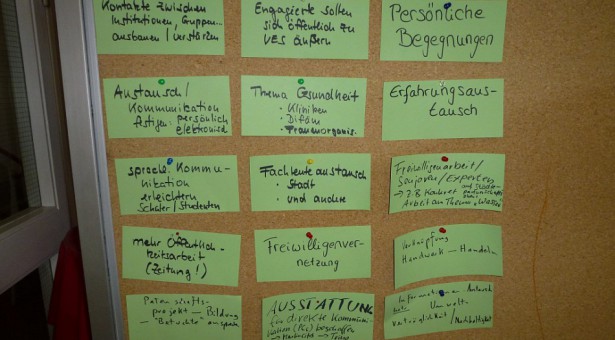 Kontakte zwischen
Institutionen, Gruppen
ausbauen / verstärken
Engagierte sollen
sich öffentlich zu
VES äußern
Persönliche
Begegnungen
Austausch/
Kommunikation
festigen: persönlich
elektronisch
Thema Gesundheit
• Kliniken
• Difäm
• Frauenorganis.
Erfahrungsaus-
tausch
sprachl. Kommu-
nikation
erleichtern
Schüler/Studenten
Fachleuteaustausch
• Stadt
• und andere
Freiwilligenarbeit/
Senioren/Experten
→ z.B. Konkret
Arbeit an Thema "Wasser"
mehr Öffentlich-
keitsarbeit
(Zeitung!)
Freiwilligenver-
netzung
Verknüpfung
Handwerk — Handeln
Patenschafts-
projekt — Bildung
AUSSTATTUNG
für direkte Kommuni-
kation (PCs) beschaffen
Informationen Austausch
Umwelt-
verträglichkeit / Nachhaltigkeit